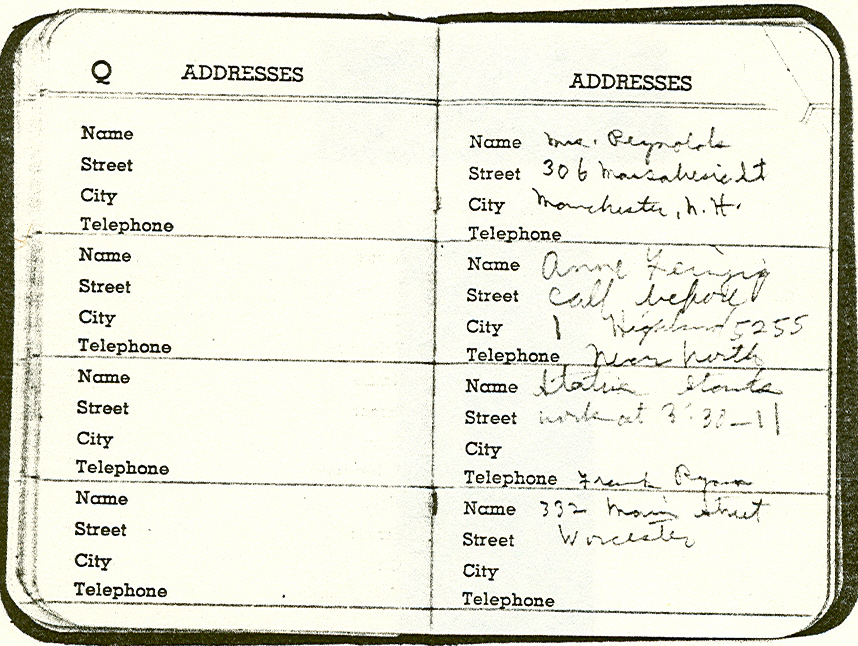 Q ADDRESSES
Name
Street
City
Telephone
Name
Street
City
Telephone
Name
Street
City
Telephone
Name
Street
City
Telephone
ADDRESSES
Name Mrs. Reynolds
Street 306 Massabesic St
City Manchester, N. H.
Telephone
Name Anne
Street call before
City 1 Highland 5255
Telephone Near North
Name Station Starts
Street work at 3:30-11
City
Telephone Frank Ryan
Name 332 Main Street
Street Worcester
City
Telephone